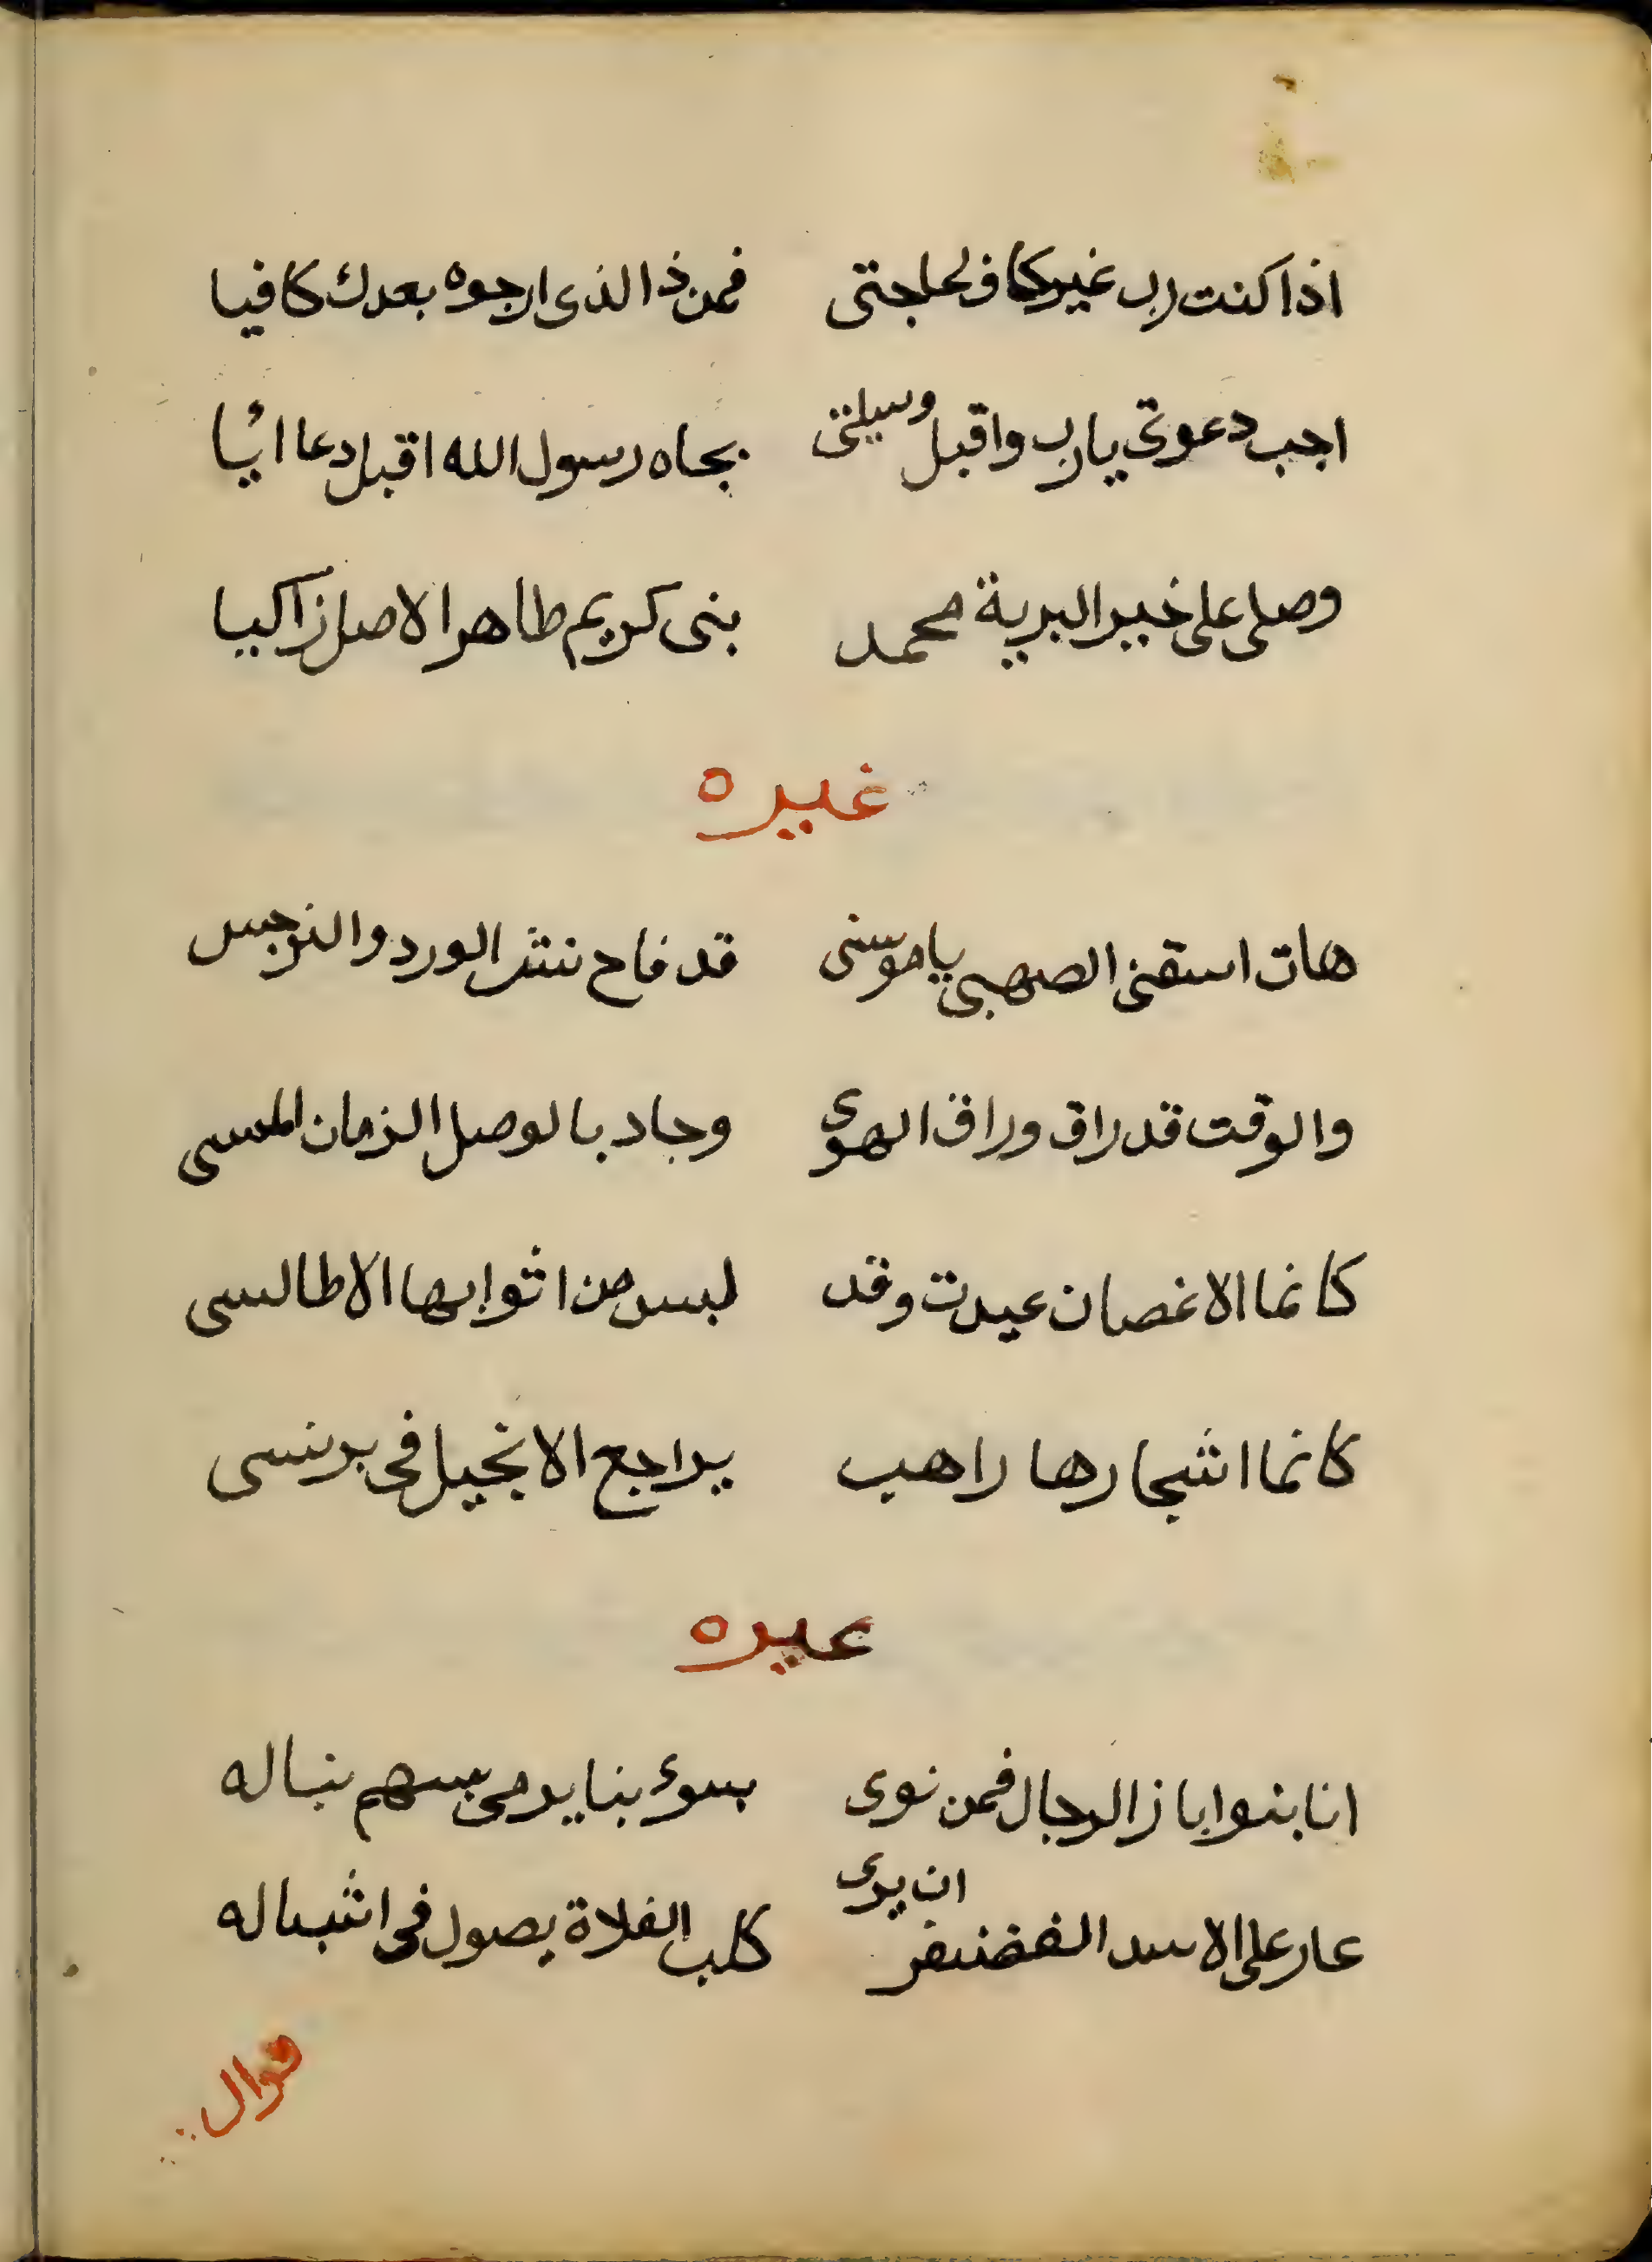 اذا كنت رب غيركاف لحاجتى فمن ذا الذى ارجوه بعدك كافيا
اجب دعوتى يارب واقبل وسيلتى بجاه رسول الله اقبل دعا ائيا
وصلى على خير البرية محمد بنى كريم طاهر الاصل زاكيا
غيره
هات اسقنى الصهبى يا موسنى قد فاح نشر الورد والنرجس
والوقت قد راق وراق الهوى وجاد بالوصل الزمان المسى
كانما الاغصان عيدت وقد لبسن من اثوابها الاطالسى
كانما اشجارها راهب يراجع الانجيل فى برنسى
غيره
انا بنوا باز الرجال فمن نوى بسوء بنا يرمى بسهم نباله
عار على الاسد الغضنفر ان يرى كلب الفلاة يصول فى اشباله